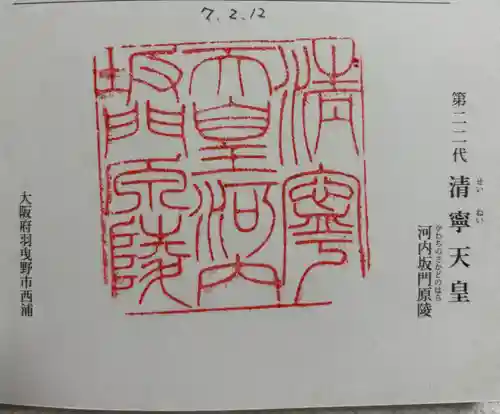 7.2.12
第二二代 清寧天皇
せい ねい
河内坂門原陵
かわちのさかどのはら
清寧
天皇河内
坂門原陵
大阪府羽曳野市西浦